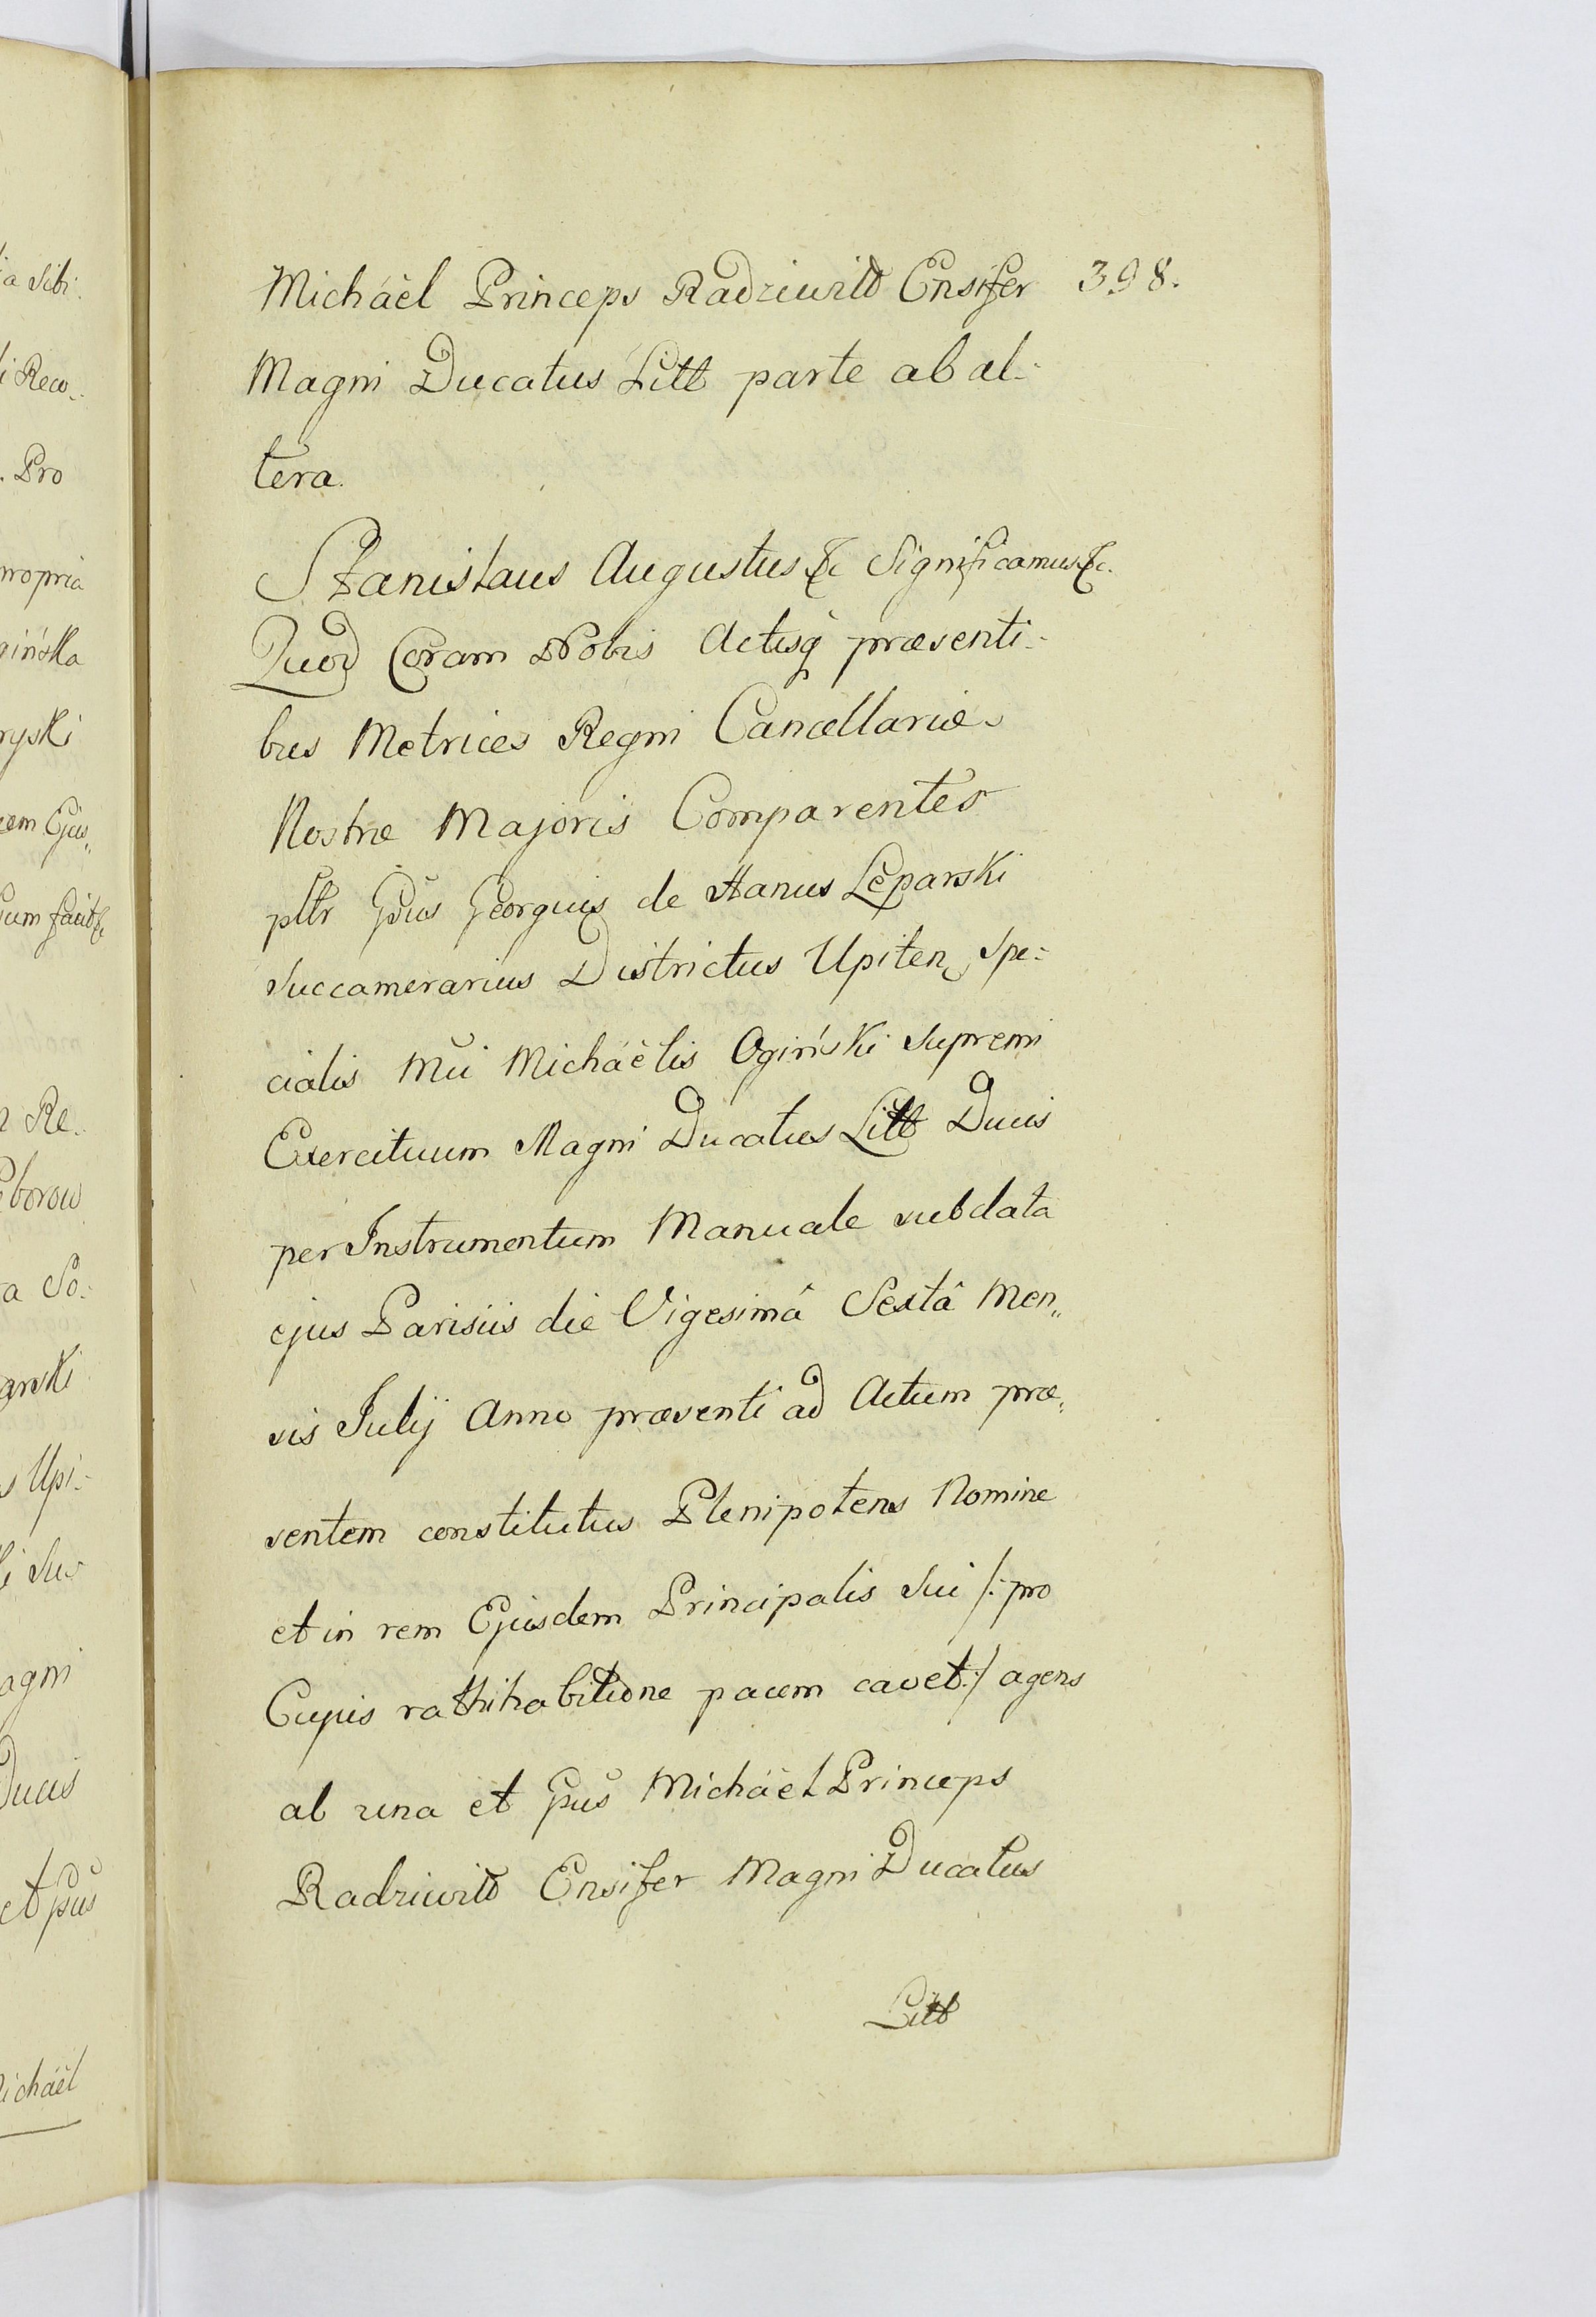 398.
Micháël Princeps Radziwiłł Ensifer
Magni Ducatus Litt parte ab al-
tera.
Stanislaus Augustus &c Significamus &c.
Quod Coram Nobis Actisq̀ præsenti-
bus Metrices Regni Cancellariæ
Nostræ Majoris Comparentes
pltr Gnus Georgius de Hanus Leparski
Succamerarius Districtus Upiten, Spe-
cialis Mci Micháëlis Ogiński Supremi
Exercituum Magni Ducatus Litt Ducis
per Instrumentum Manuale sub data
ejus Parisiis die Vigesimâ Sextâ Men„
sis Julij Anno præsenti ad Actum præ„
sentem constitutus Plenipotens Nomine
et in rem Ejusdem Principalis Sui /: pro
Cujus rathihabitione pacem cavet :/ agens
ab una et Gnus Micháël Princeps
Radziwiłł Ensifer Magni Ducatus
Litt